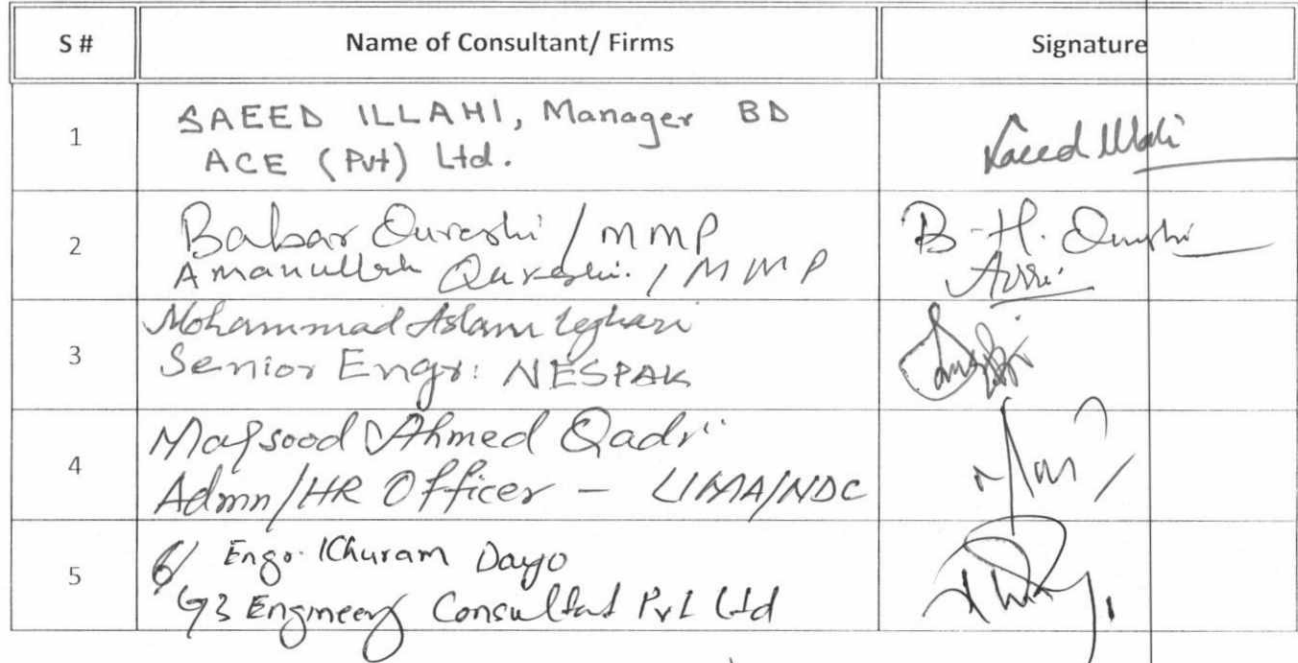 S # Name of Consultant/ Firms Signature
1 SAEED ILLAHI, Manager BD
ACE (Pvt) Ltd. Saeed Illahi
2 Babar Qureshi / MMP B-H. Qureshi
Amanullah Qureshi. / MMP
3 Mohammad Aslam Leghari
Senior Engr: NESPAK
4 Maqsood Ahmed Qadri
Admn/HR Officer - LIMA/NDC
5 Engr. Khuram Dayo
G3 Engineery Consultant Pvt Ltd